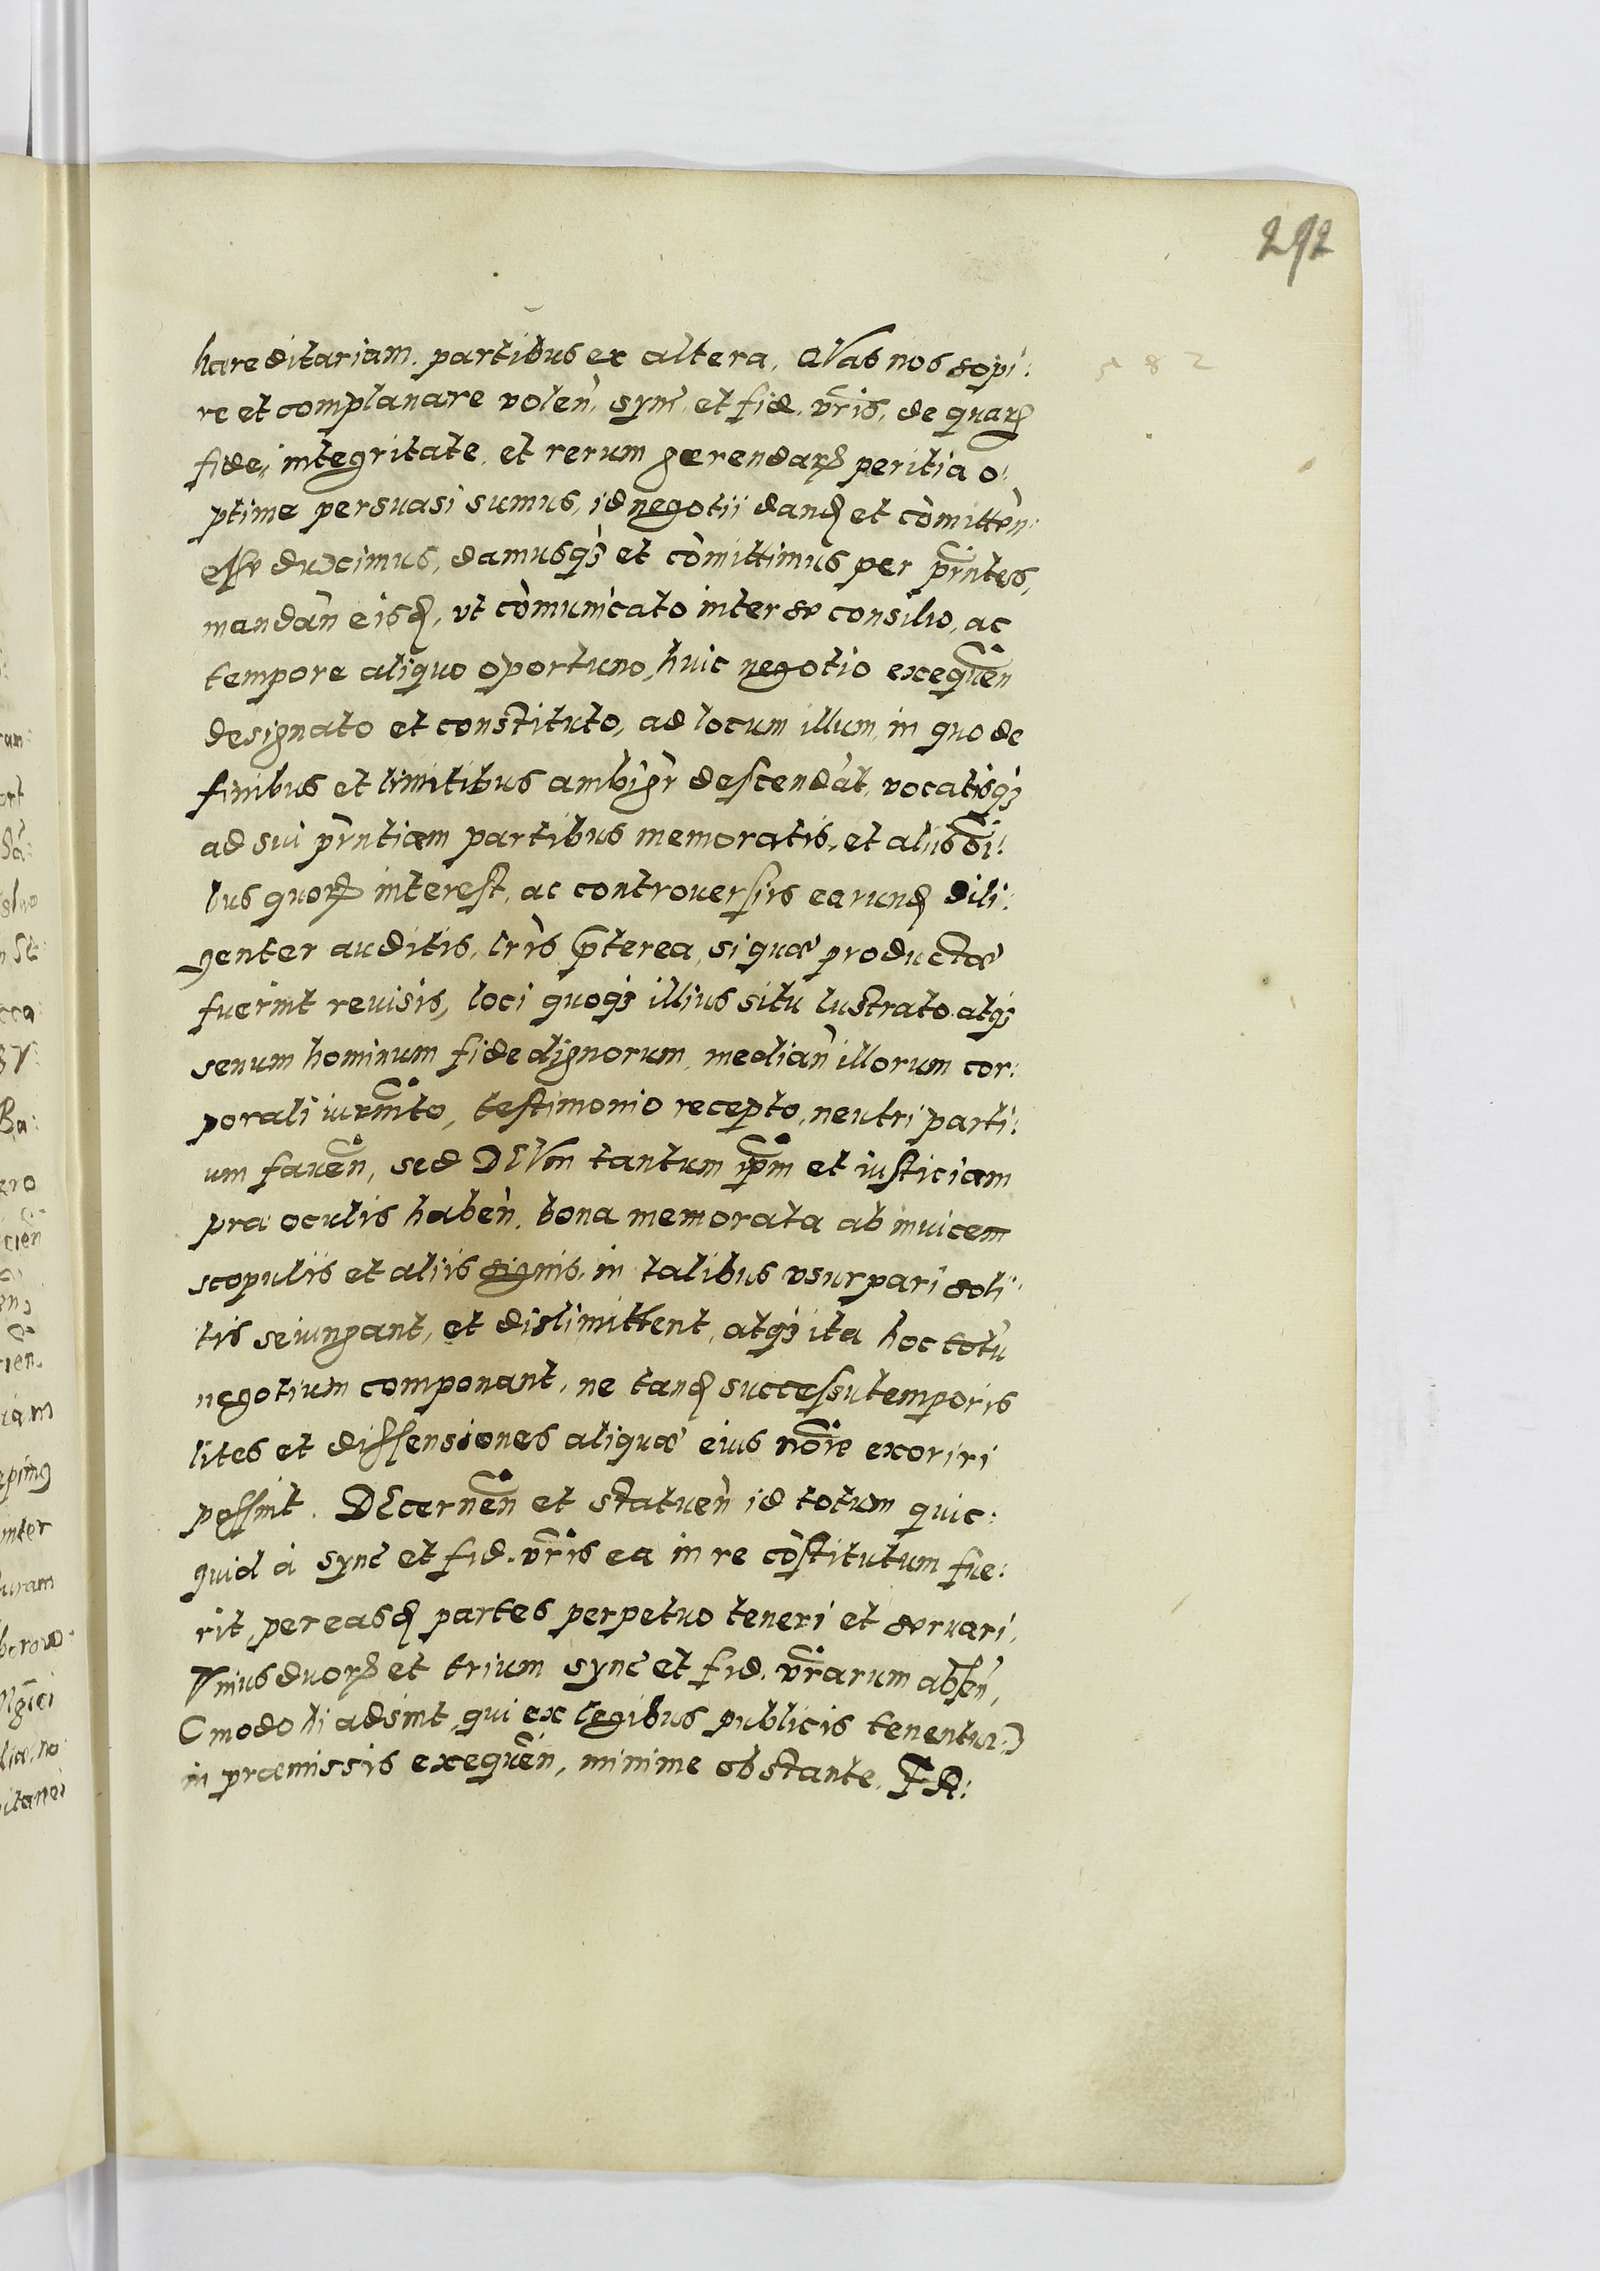 292
hæreditariam, partibus ex altera, Quas nos sopi:
re et complanare volen̄, sync̄, et fid. vr̄is, de quarꝝ
fide, integritate, et rerum gerendarꝝ peritia o:
ptime persuasi sumus, id negotii danḋ et com̄itten̄:
esse duximus, damusqꝫ et com̄ittimus per pr̄ntes,
mandan̄ eisḋ, vt com̄unicato inter se consilio, ac
tempore aliquo oportuno, huic negotio exequen̄
designato et constituto, ad locum illum, in quo de
finibus et limitibus ambigr̄ descendāt, vocatisqꝫ
ad sui pr̄ntiam partibus memoratis, et aliis oı̄:
bus quorꝝ interest, ac controuersiis earunḋ dili:
genter auditis, lr̄is p̄terea, si quæ productæ
fuerint reuisis, loci quoqꝫ illius situ lustrato atqꝫ
senum hominum fide dignorum, median̄ illorum cor:
porali iurm̄to, testimonio recepto, neutri parti:
um fauen̄, sed DEVm tantum ip̄m et iusticiam
præ oculis haben̄, bona memorata ab inuicem
scopulis et aliis signis, in talibus vsurpari soli:
tis seiungant, et dislimittent, atqꝫ ita hoc totū
negotium componant, ne tanḋ successu temporis
lites et dissensiones aliquæ eius noı̄e exoriri
possint. DEcernen̄ et statuen̄ id totum quic:
quid à sync̄ et fid. vr̄is ea in re cōstitutum fue:
rit, per easḋ partes perpetuo teneri et seruari,
Vnius duorꝝ et trium sync̄ et fid. vr̄arum absen̄,
(modo hi adsint, qui ex legibus publicis tenentur)
in præmissis exequen̄, minime obstante.